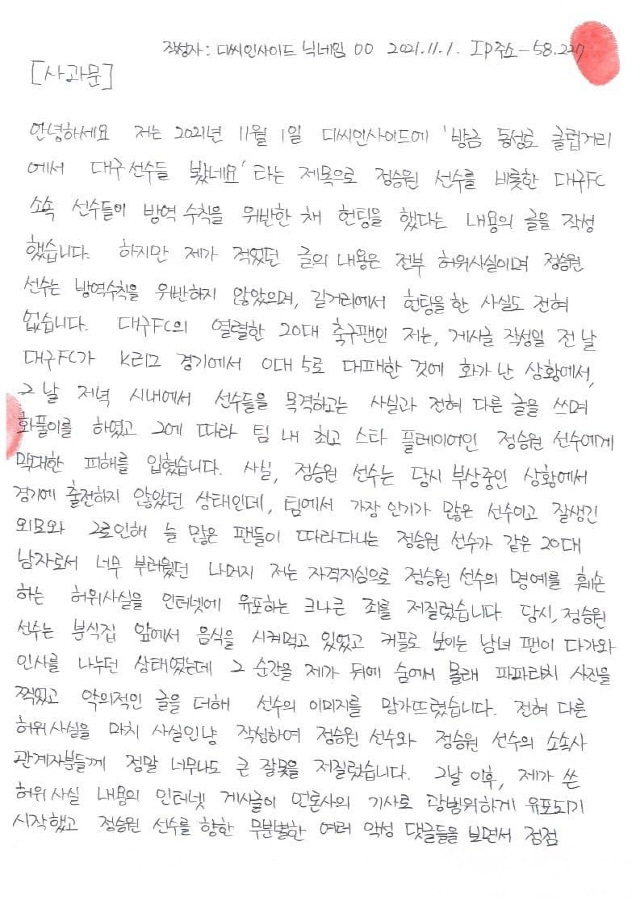 작성자 : 디씨인사이드 닉네임 00 2021.11.1. IP주소-58.227
[사과문]
안녕하세요 저는 2021년 11월 1일 디씨인사이드에 '방금 동성로 클럽거리
에서 대구선수들 봤네요' 라는 제목으로 정승원 선수를 비롯한 대구FC
소속 선수들이 방역 수칙을 위반한 채 헌팅을 했다는 내용의 글을 작성
했습니다. 하지만 제가 적었던 글의 내용은 전부 허위사실이며 정승원
선수는 방역수칙을 위반하지 않았으며, 길거리에서 헌팅을 한 사실도 전혀
없습니다. 대구FC의 열렬한 20대 축구팬인 저는, 게시글 작성일 전 날
대구FC가 K리그 경기에서 0대 5로 대패한 것에 화가 난 상황에서,
그 날 저녁 시내에서 선수들을 목격하고는 사실과 전혀 다른 글을 쓰며
화풀이를 하였고 그에 따라 팀 내 최고 스타 플레이어인 정승원 선수에게
막대한 피해를 입혔습니다. 사실, 정승원 선수는 당시 부상중인 상황에서
경기에 출전하지 않았던 상태인데, 팀에서 가장 인기가 많은 선수이고 잘생긴
외모와 그로인해 늘 많은 팬들이 따라다니는 정승원 선수가 같은 20대
남자로서 너무 부러웠던 나머지 저는 자격지심으로 정승원 선수의 명예를 훼손
하는 허위사실을 인터넷에 유포하는 크나큰 죄를 저질렀습니다. 당시, 정승원
선수는 분식집 앞에서 음식을 시켜먹고 있었고 커플로 보이는 남녀 팬이 다가와
인사를 나누던 상태였는데 그 순간을 제가 뒤에 숨어서 몰래 파파라치 사진을
찍었고 악의적인 글을 더해 선수의 이미지를 망가뜨렸습니다. 전혀 다른
허위사실을 마치 사실인냥 작성하여 정승원 선수와 정승원 선수의 소속사
관계자분들께 정말 너무나도 큰 잘못을 저질렀습니다. 그날 이후, 제가 쓴
허위사실 내용의 인터넷 게시글이 언론사의 기사로 광범위하게 유포되기
시작했고 정승원 선수를 향한 무분별한 여러 악성 댓글들을 보면서 점점